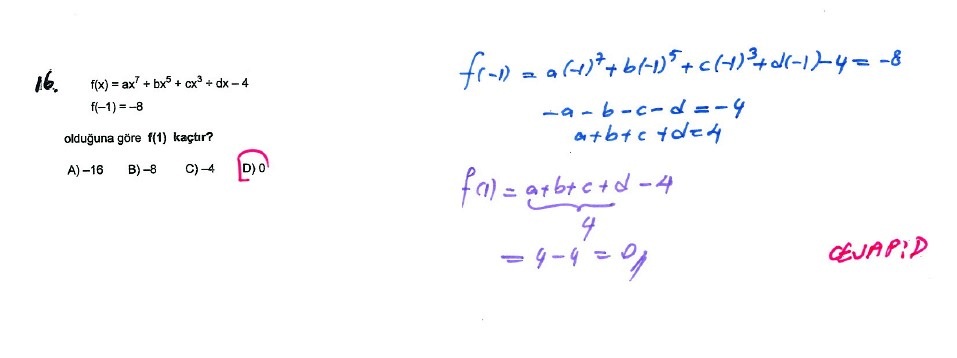 16.
f(x) = ax⁷ + bx⁵ + cx³ + dx – 4
f(–1) = –8
olduğuna göre f(1) kaçtır?
A) –16 B) –8 C) –4 D) 0
f(-1) = a(-1)⁷ + b(-1)⁵ + c(-1)³ + d(-1) - 4 = -8
-a - b - c - d = -4
a + b + c + d = 4
f(1) = a + b + c + d - 4
4
= 4 - 4 = 0
CEVAP: D